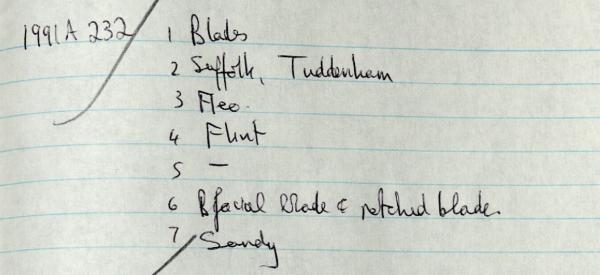 1991A 232 1 Blades
2 Suffolk, Tuddenham
3 Neo.
4 Flint
5 —
6 Bifacial blade & notched blade.
7 Sandy